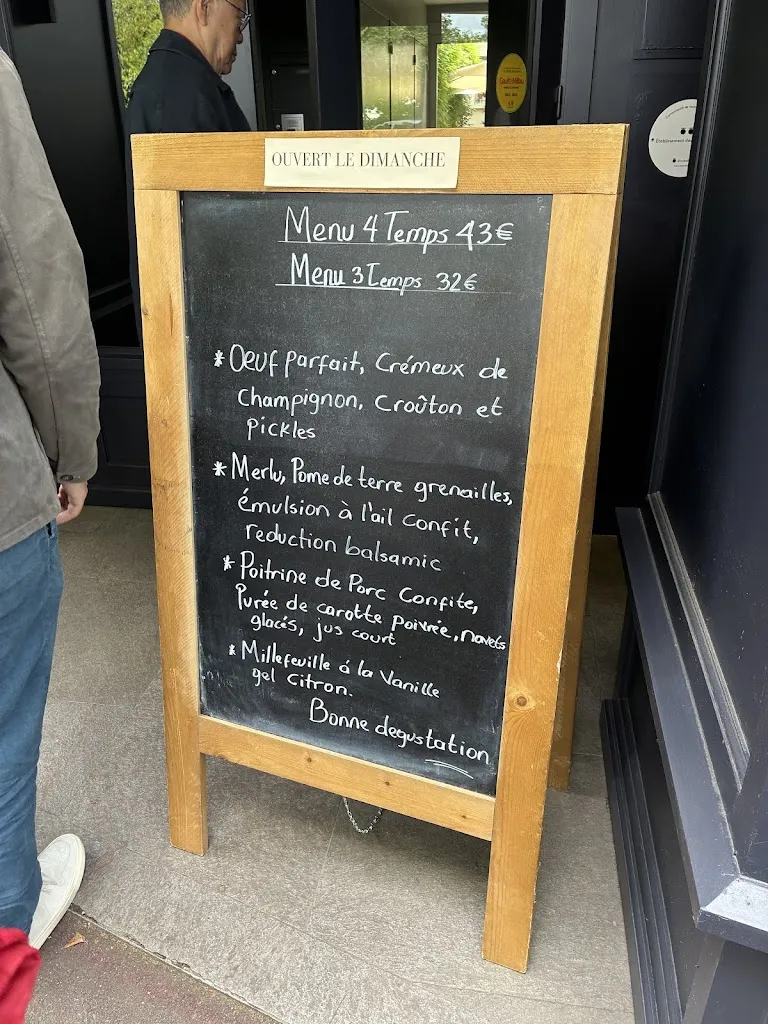 OUVERT LE DIMANCHE
Menu 4 Temps 43€
Menu 3 Temps 32€
* Oeuf Parfait, Crémeux de
Champignon, Croûton et
Pickles
* Merlu, Pome de terre grenailles,
émulsion à l'ail confit,
reduction balsamic
* Poitrine de Porc Confite,
Purée de carotte poivrée, navets
glacés, jus court
* Millefeuille á la Vanille
gel citron.
Bonne degustation
Gault&Millau